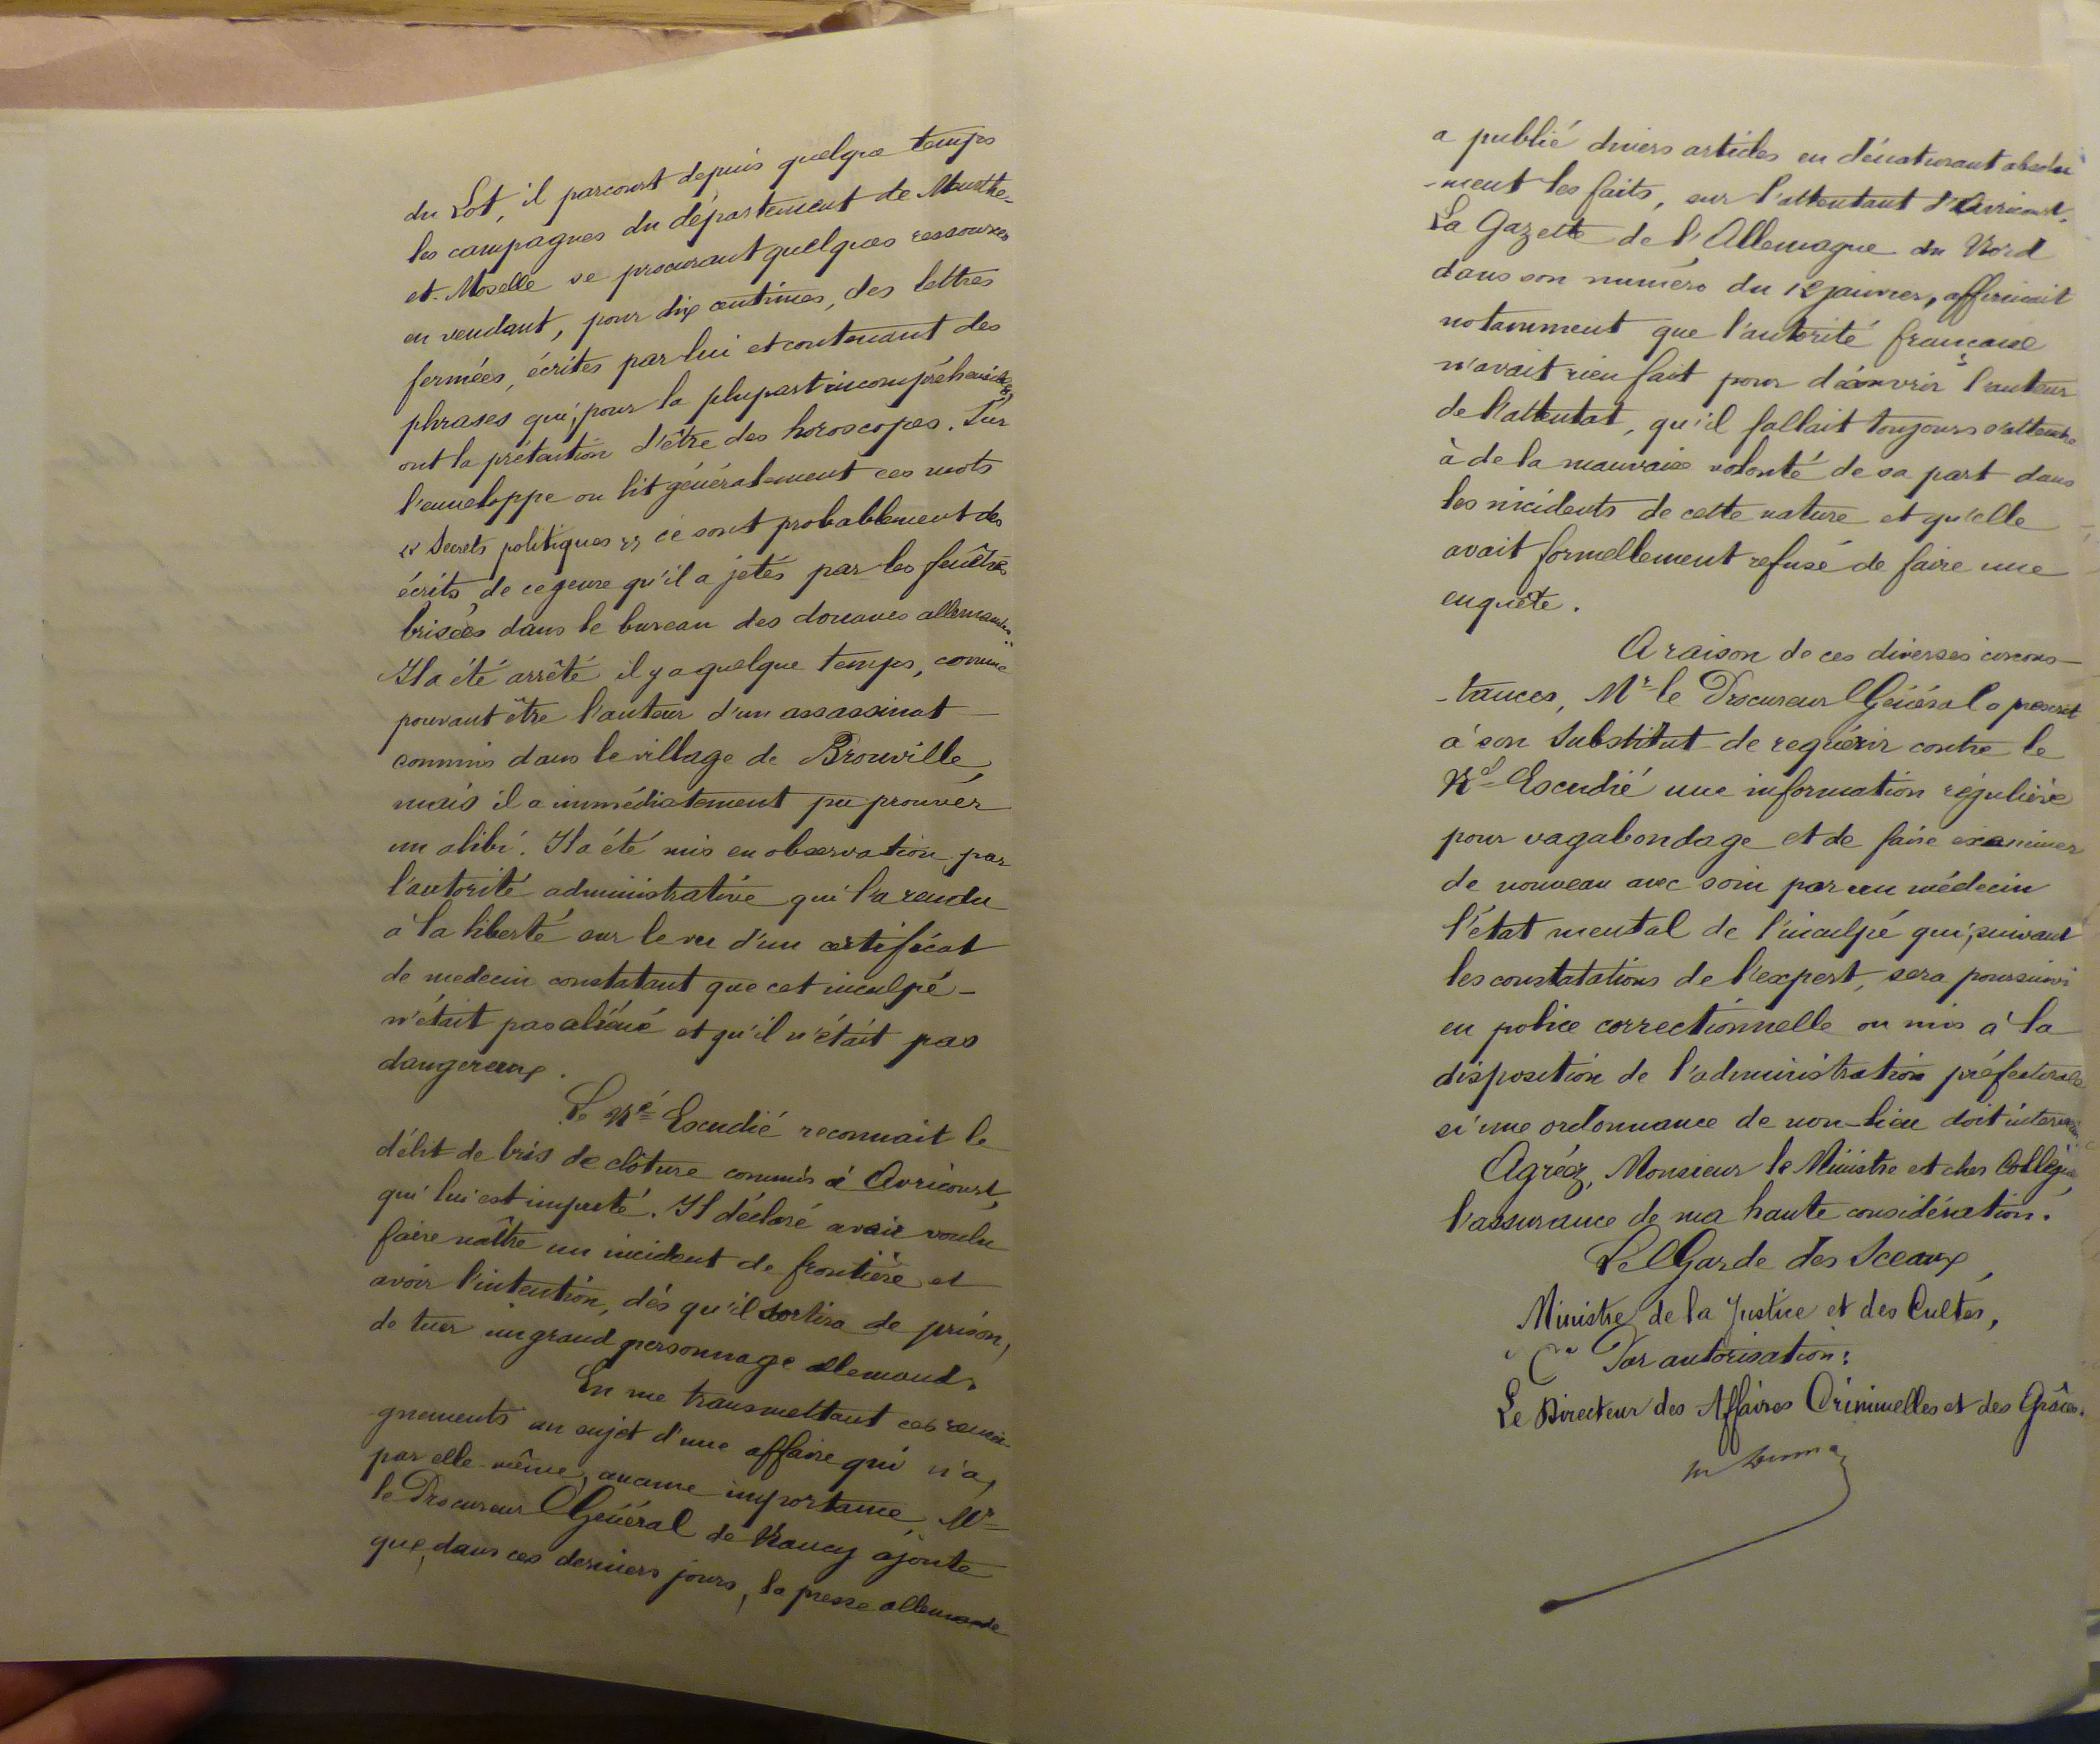 du Lot, il parcourt depuis quelque temps
les campagnes du département de Meurthe-
et-Moselle se procurant quelques ressources
en vendant, pour dix centimes, des lettres
fermées, écrites par lui et contenant des
phrases qui, pour la plupart incompréhensibles,
ont la prétention d'être des horoscopes. Sur
l'enveloppe on lit généralement ces mots
« Secrets politiques » ce sont probablement des
écrits de ce genre qu'il a jetés par les fenêtres
brisées dans le bureau des douanes allemandes.
Il a été arrêté il y a quelque temps, comme
pouvant être l'auteur d'un assassinat
commis dans le village de Brouville,
mais il a immédiatement pu prouver
un alibi. Il a été mis en observation par
l'autorité administrative qui l'a rendu
à la liberté sur le vu d'un certificat
de medecin constatant que cet inculpé
n'était pas aliéné et qu'il n'était pas
dangereux.
Le Né Escudié reconnait le
délit de bris de clôture commis à Avricourt,
qui lui est imputé. Il déclaré avoir voulu
faire naître un incident de frontière et
avoir l'intention, dès qu'il sortira de prison,
de tuer un grand personnage allemand.
En me transmettant ces rensei-
gnements au sujet d'une affaire qui n'a,
par elle-même, aucune importance, Mr
le Procureur Général de Nancy ajoute
que, dans ces derniers jours, la presse allemande
a publié divers articles en dénaturant absolu
-ment les faits, sur l'attentant d'Avricourt.
La Gazette de l'Allemagne du Nord
dans son numéro du 12 janvier, affirmait
notamment que l'autorité française
n'avait rien fait pour découvrir l'auteur
de l'attentat, qu'il fallait toujours s'attendre
à de la mauvaise volonté de sa part dans
les incidents de cette nature et qu'elle
avait formellement refusé de faire une
enquête.
A raison de ces diverses circons-
-tances, Mr le Procureur Général a prescrit
à son Substitut de requérir contre le
Né Escudié une information régulière
pour vagabondage et de faire examiner
de nouveau avec soin par un médecin
l'état mental de l'inculpé qui, suivant
les constatations de l'expert, sera poursuivi
en police correctionnelle ou mis à la
disposition de l'administration préfectorale
si une ordonnance de non-lieu doit intervenir.
Agréez, Monsieur le Ministre et cher Collègue,
l'assurance de ma haute considération.
Le Garde des Sceaux,
Ministre de la Justice et des Cultes,
Par autorisation:
Le Directeur des Affaires Criminelles et des Grâces.